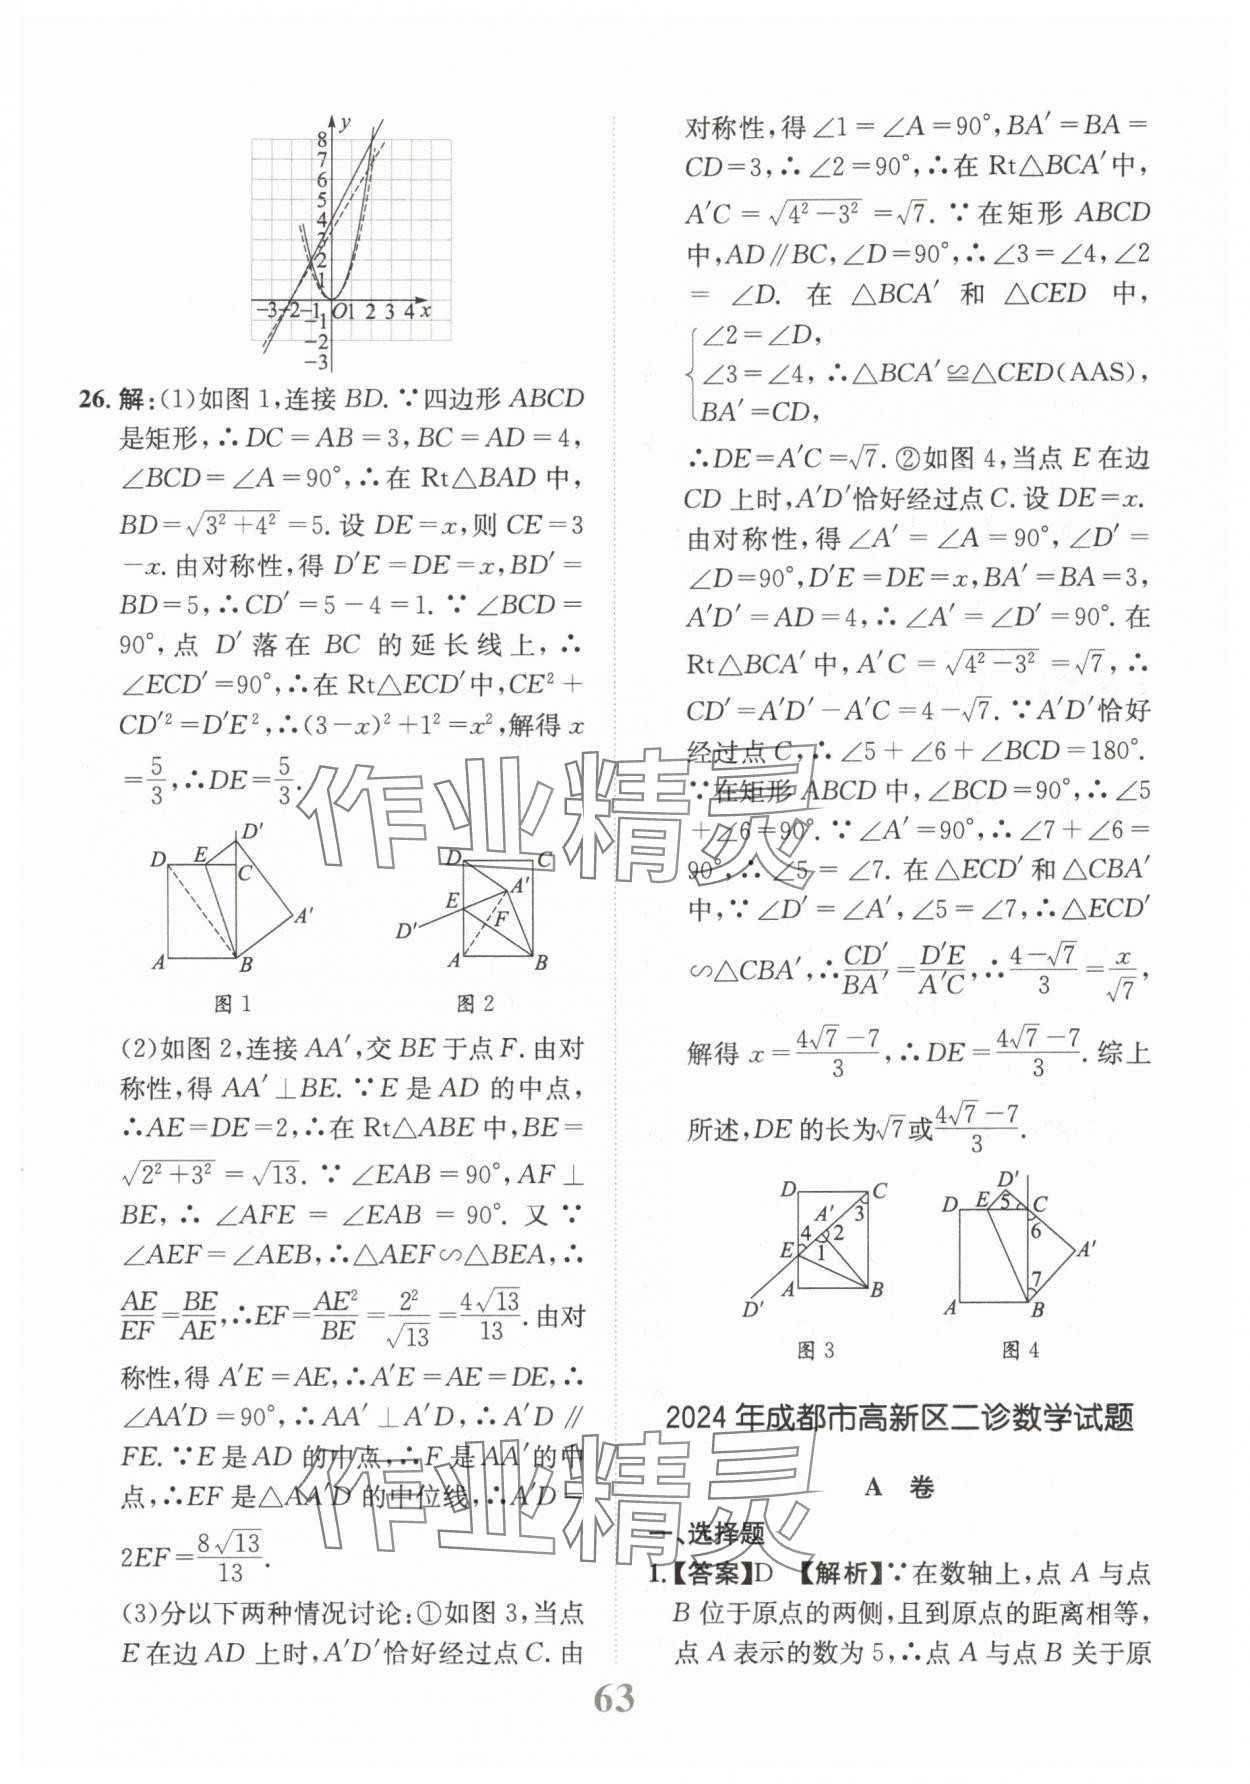 y
8
7
6
5
4
3
2
1
-3 -2 -1 O 1 2 3 4 x
-1
-2
-3
26. 解:(1)如图1,连接 BD. ∵四边形 ABCD
是矩形,∴DC=AB=3,BC=AD=4,
∠BCD=∠A=90°,∴在 Rt△BAD 中,
BD=√(3²+4²)=5. 设 DE=x,则 CE=3
-x. 由对称性,得 D′E=DE=x,BD′=
BD=5,∴CD′=5-4=1. ∵∠BCD=
90°,点 D′落在 BC 的延长线上,∴
∠ECD′=90°,∴在 Rt△ECD′中,CE²+
CD′²=D′E²,∴(3-x)²+1²=x²,解得 x
=5/3,∴DE=5/3.
D E C D′ A′ A B
图1
D C E A′ D′ F A B
图2
(2)如图2,连接 AA′,交 BE 于点 F. 由对
称性,得 AA′⊥BE. ∵E 是 AD 的中点,
∴AE=DE=2,∴在 Rt△ABE 中,BE=
√(2²+3²)=√13. ∵∠EAB=90°,AF⊥
BE,∴∠AFE=∠EAB=90°. 又∵
∠AEF=∠AEB,∴△AEF∽△BEA,∴
AE/EF=BE/AE,∴EF=AE²/BE=2²/√13=4√13/13. 由对
称性,得 A′E=AE,∴A′E=AE=DE,∴
∠AA′D=90°,∴AA′⊥A′D,∴A′D∥
FE. ∵E 是 AD 的中点,∴F 是 AA′的中
点,∴EF 是△AA′D 的中位线,∴A′D=
2EF=8√13/13.
(3)分以下两种情况讨论:①如图3,当点
E 在边 AD 上时,A′D′恰好经过点 C. 由
对称性,得∠1=∠A=90°,BA′=BA=
CD=3,∴∠2=90°,∴在 Rt△BCA′中,
A′C=√(4²-3²)=√7. ∵在矩形 ABCD
中,AD∥BC,∠D=90°,∴∠3=∠4,∠2
=∠D. 在△BCA′和△CED 中,
∠2=∠D,
∠3=∠4, ∴△BCA′≌△CED(AAS),
BA′=CD,
∴DE=A′C=√7. ②如图4,当点 E 在边
CD 上时,A′D′恰好经过点 C. 设 DE=x.
由对称性,得∠A′=∠A=90°,∠D′=
∠D=90°,D′E=DE=x,BA′=BA=3,
A′D′=AD=4,∴∠A′=∠D′=90°. 在
Rt△BCA′中,A′C=√(4²-3²)=√7,∴
CD′=A′D′-A′C=4-√7. ∵A′D′恰好
经过点 C,∴∠5+∠6+∠BCD=180°.
∵在矩形 ABCD 中,∠BCD=90°,∴∠5
+∠6=90°. ∵∠A′=90°,∴∠7+∠6=
90°,∴∠5=∠7. 在△ECD′和△CBA′
中,∵∠D′=∠A′,∠5=∠7,∴△ECD′
∽△CBA′,∴CD′/BA′=D′E/A′C,∴(4-√7)/3=x/√7,
解得 x=(4√7-7)/3,∴DE=(4√7-7)/3. 综上
所述,DE 的长为√7或(4√7-7)/3.
D C A′ 3 4 2 1 E A B D′
图3
D E D′ 5 C 6 A′ 7 A B
图4
2024 年成都市高新区二诊数学试题
A 卷
一、选择题
1.【答案】D 【解析】∵在数轴上,点 A 与点
B 位于原点的两侧,且到原点的距离相等,
点 A 表示的数为 5,∴点 A 与点 B 关于原
63
作业精灵
作业精灵